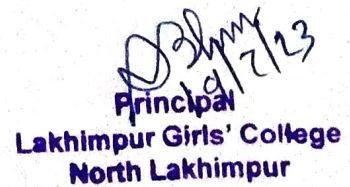 19/7/23
Principal
Lakhimpur Girls' College
North Lakhimpur